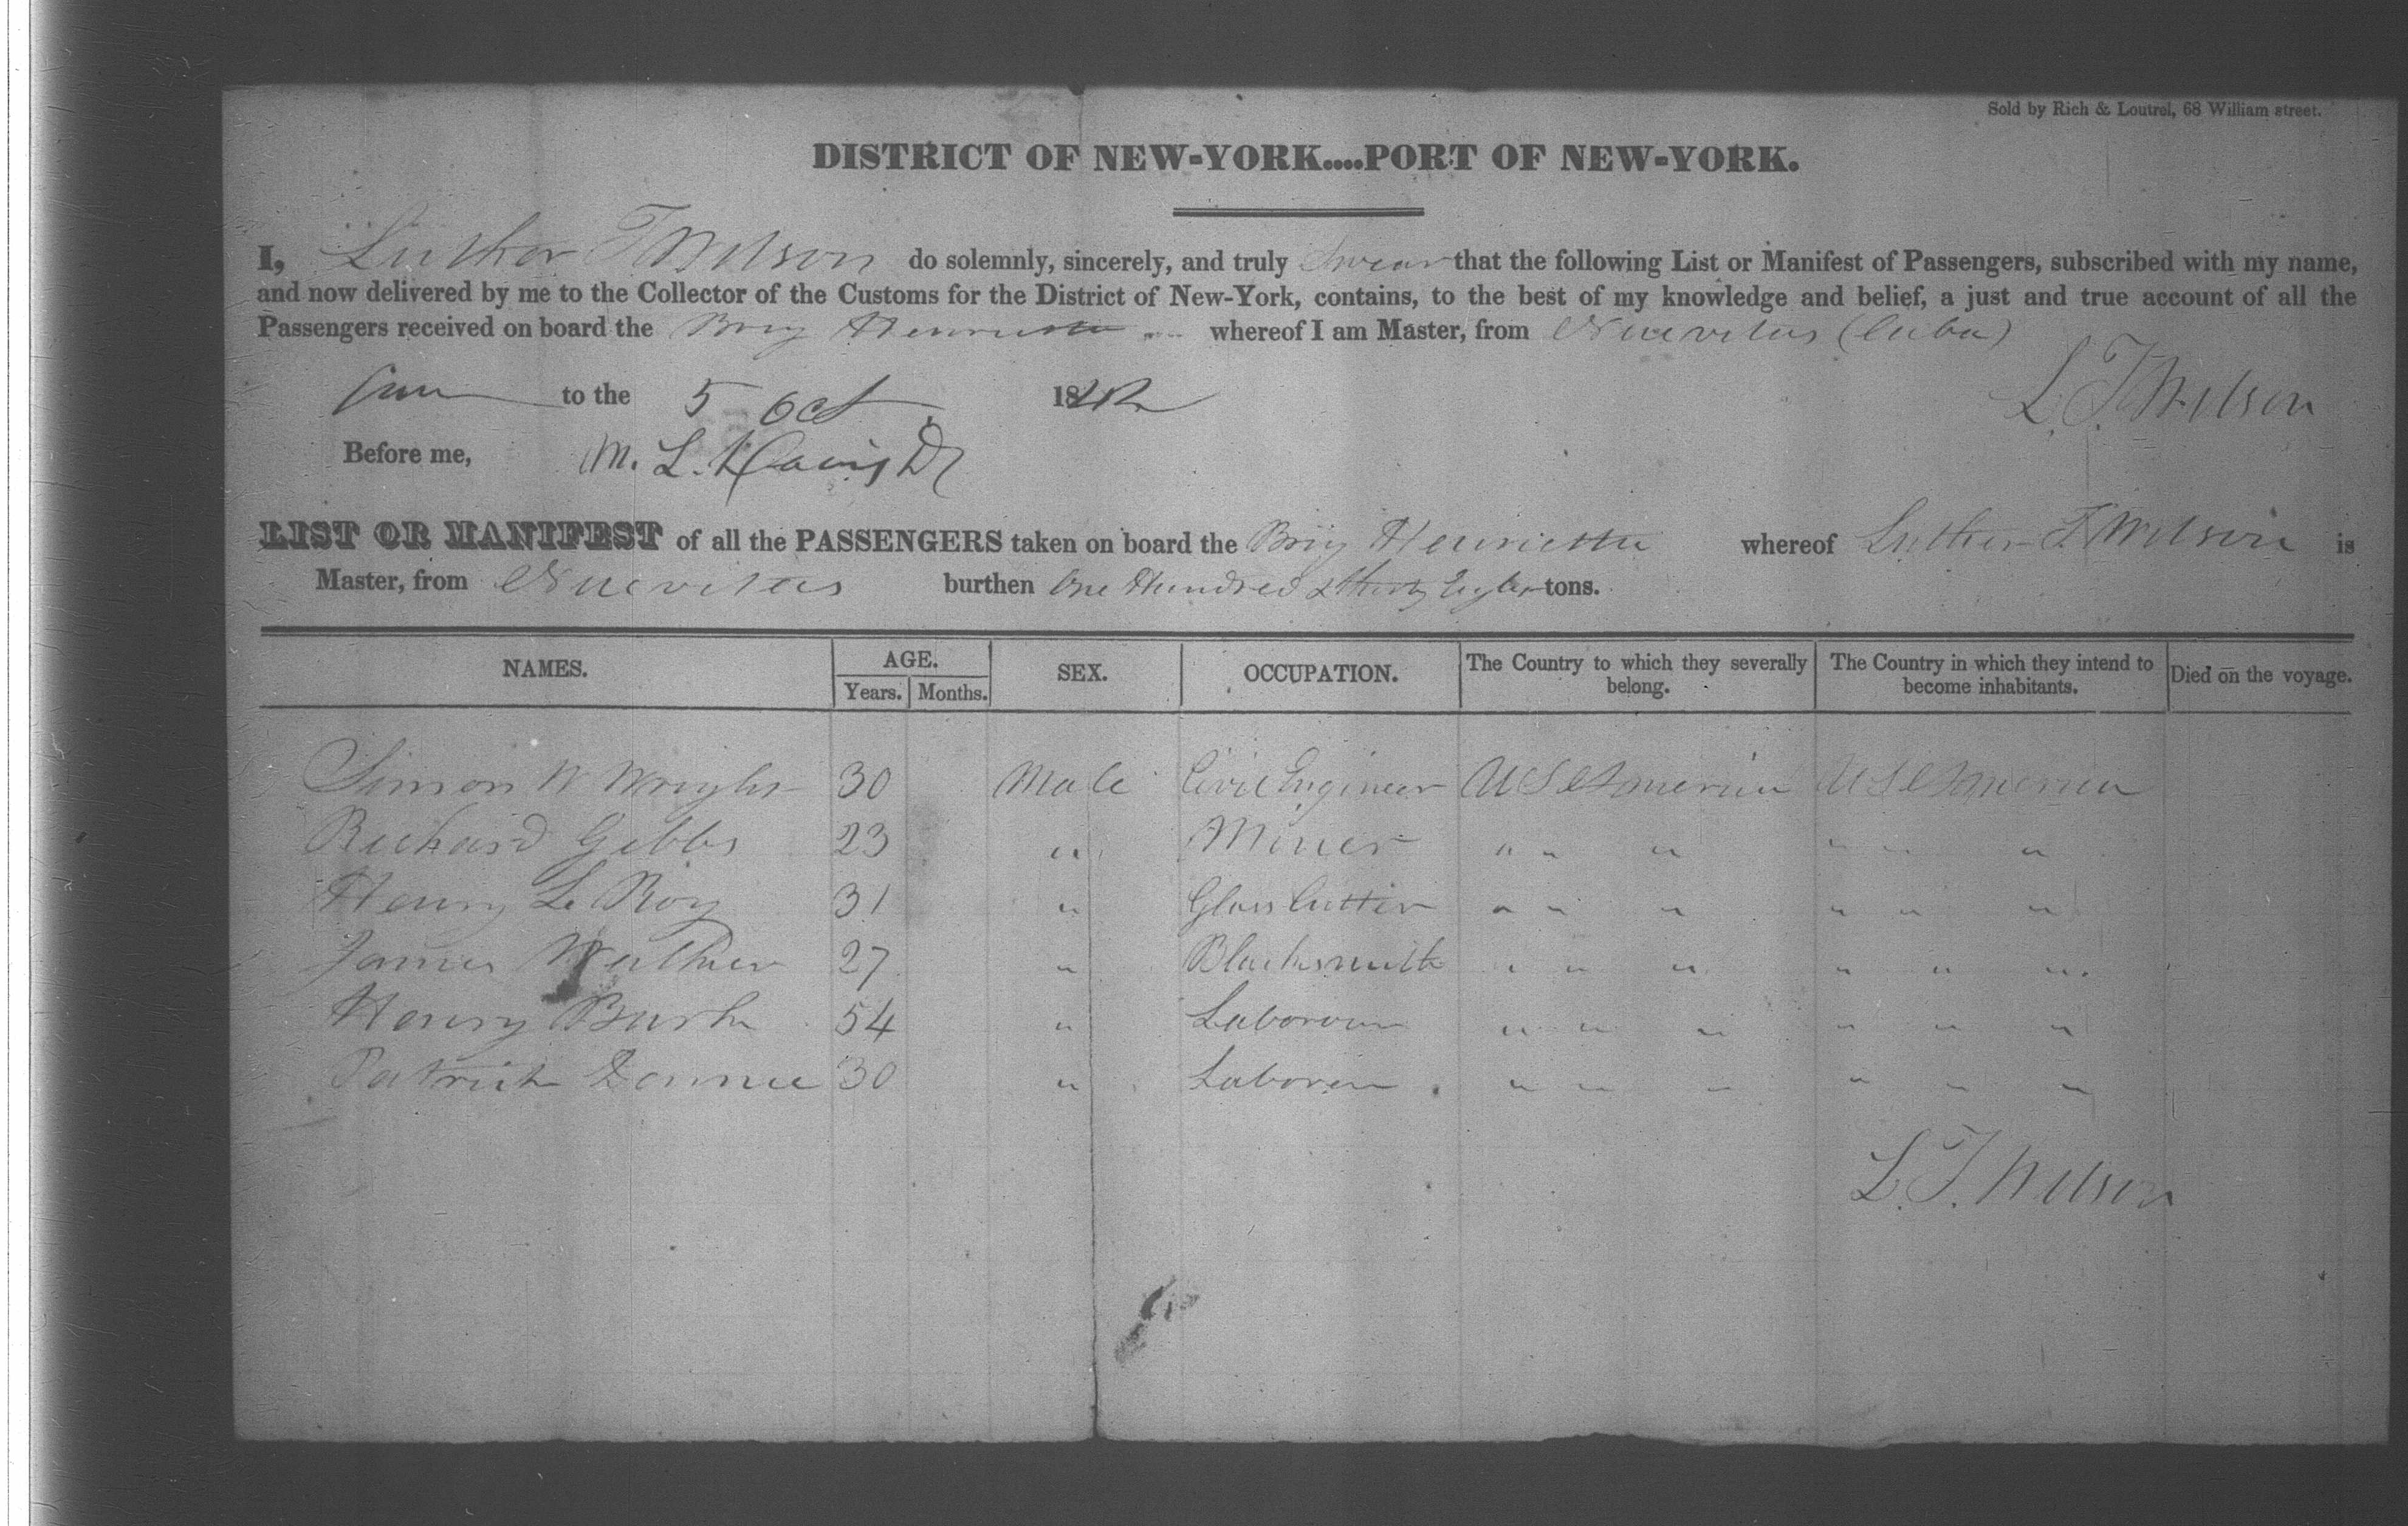 Sold by Rich & Loutrel, 68 William street.
DISTRICT OF NEW-YORK....PORT OF NEW-YORK.
I, Luther T Wilson do solemnly, sincerely, and truly Swear that the following List or Manifest of Passengers, subscribed with my name,
and now delivered by me to the Collector of the Customs for the District of New-York, contains, to the best of my knowledge and belief, a just and true account of all the
Passengers received on board the Brig Henrietta whereof I am Master, from Nuevitas (Cuba)
to the 5 Oct 1842 L. T. Wilson
Before me, M. L. Davis
LIST OR MANIFEST of all the PASSENGERS taken on board the Brig Henrietta whereof Luther T Wilson is
Master, from Nuevitas burthen One Hundred & Thirty Eight tons.
NAMES. AGE. Years. Months. SEX. OCCUPATION. The Country to which they severally belong. The Country in which they intend to become inhabitants. Died on the voyage.
Simon W Wright 30 Male Civil Engineer U S America U S America
Richard Gibbs 23 " Miner " " " " " "
Henry Le Roy 31 " Glass Cutter " " " " " "
James 27 " Blacksmith " " " " " "
Henry 54 " " " " " " "
Patrick 30 " " " " " " "
L. T. Wilson